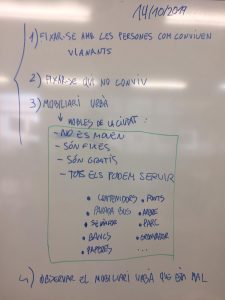 14/10/2019
1) FIXAR-SE AMB LES PERSONES COM CONVIVEN
VIANANTS
2) FIXAR-SE QUI NO CONVIV
3) MOBILIARI URBÀ
MOBLES DE LA CIUTAT:
- NO ES MOUEN
- SÓN FIXES
- SÓN GRATIS
- TOTS ELS PODEM SERVIR
• CONTENIDORS • FONTS
• PARADA BUS • ARBRE
• SEMÀFOR • PARC
• BANCS
• PAPERES ...
4) OBSERVAR EL MOBILIARI URBÀ QUE ESTÀ MAL